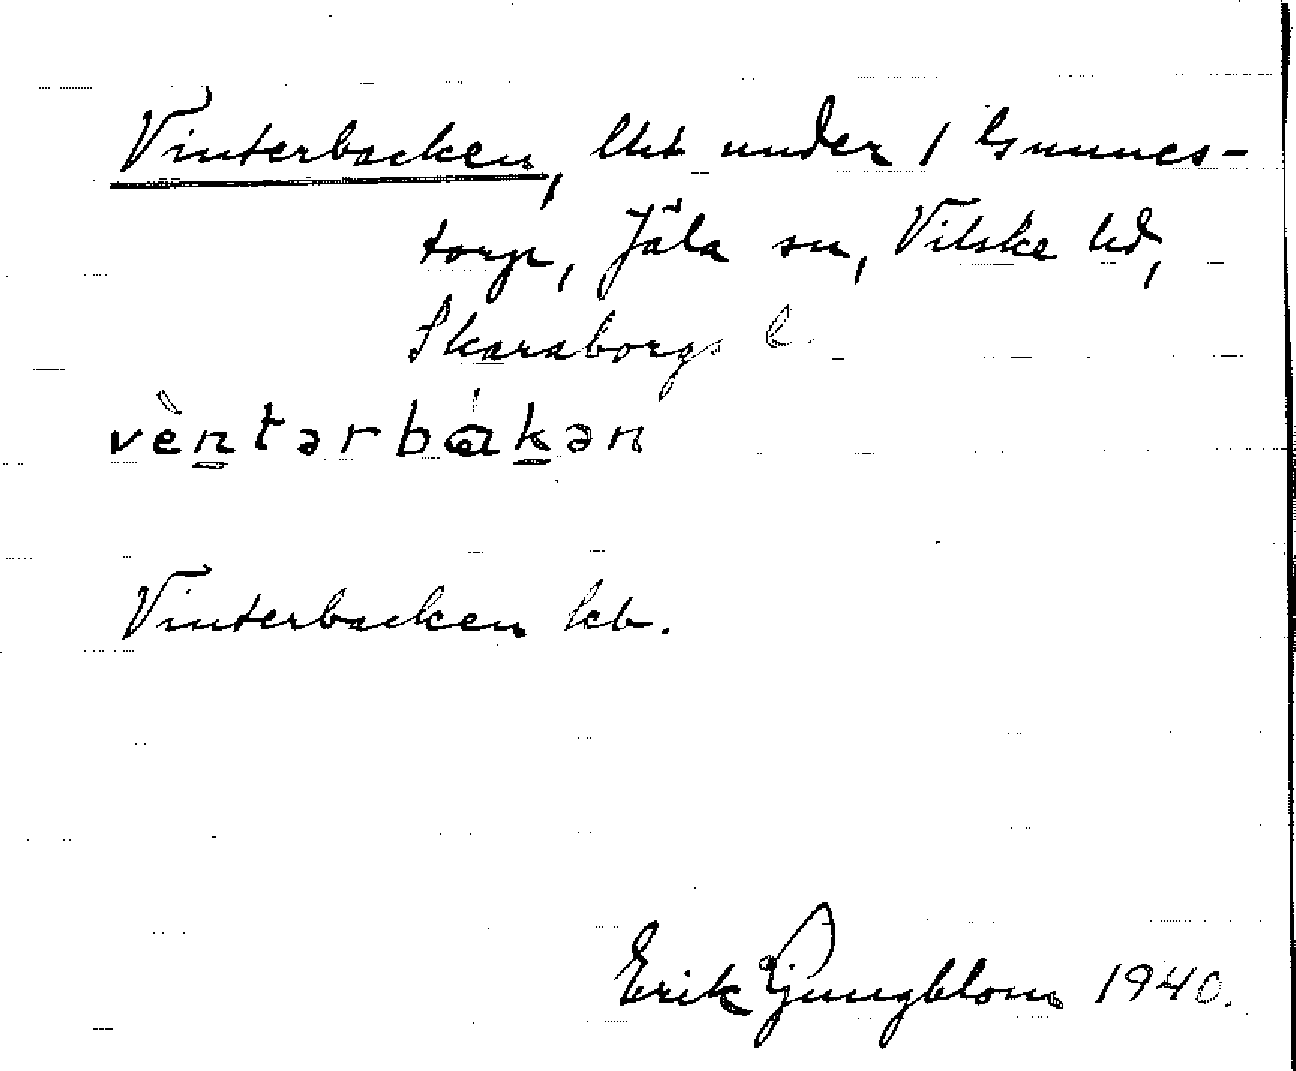 Vinterbacken, lht under 1 Gunnes-
torp, Jäla sn, Vilske hd,
Skaraborgs l.
vèn̲tərbák̲ən
Vinterbacken kb.
Erik Ljungblom 1940.